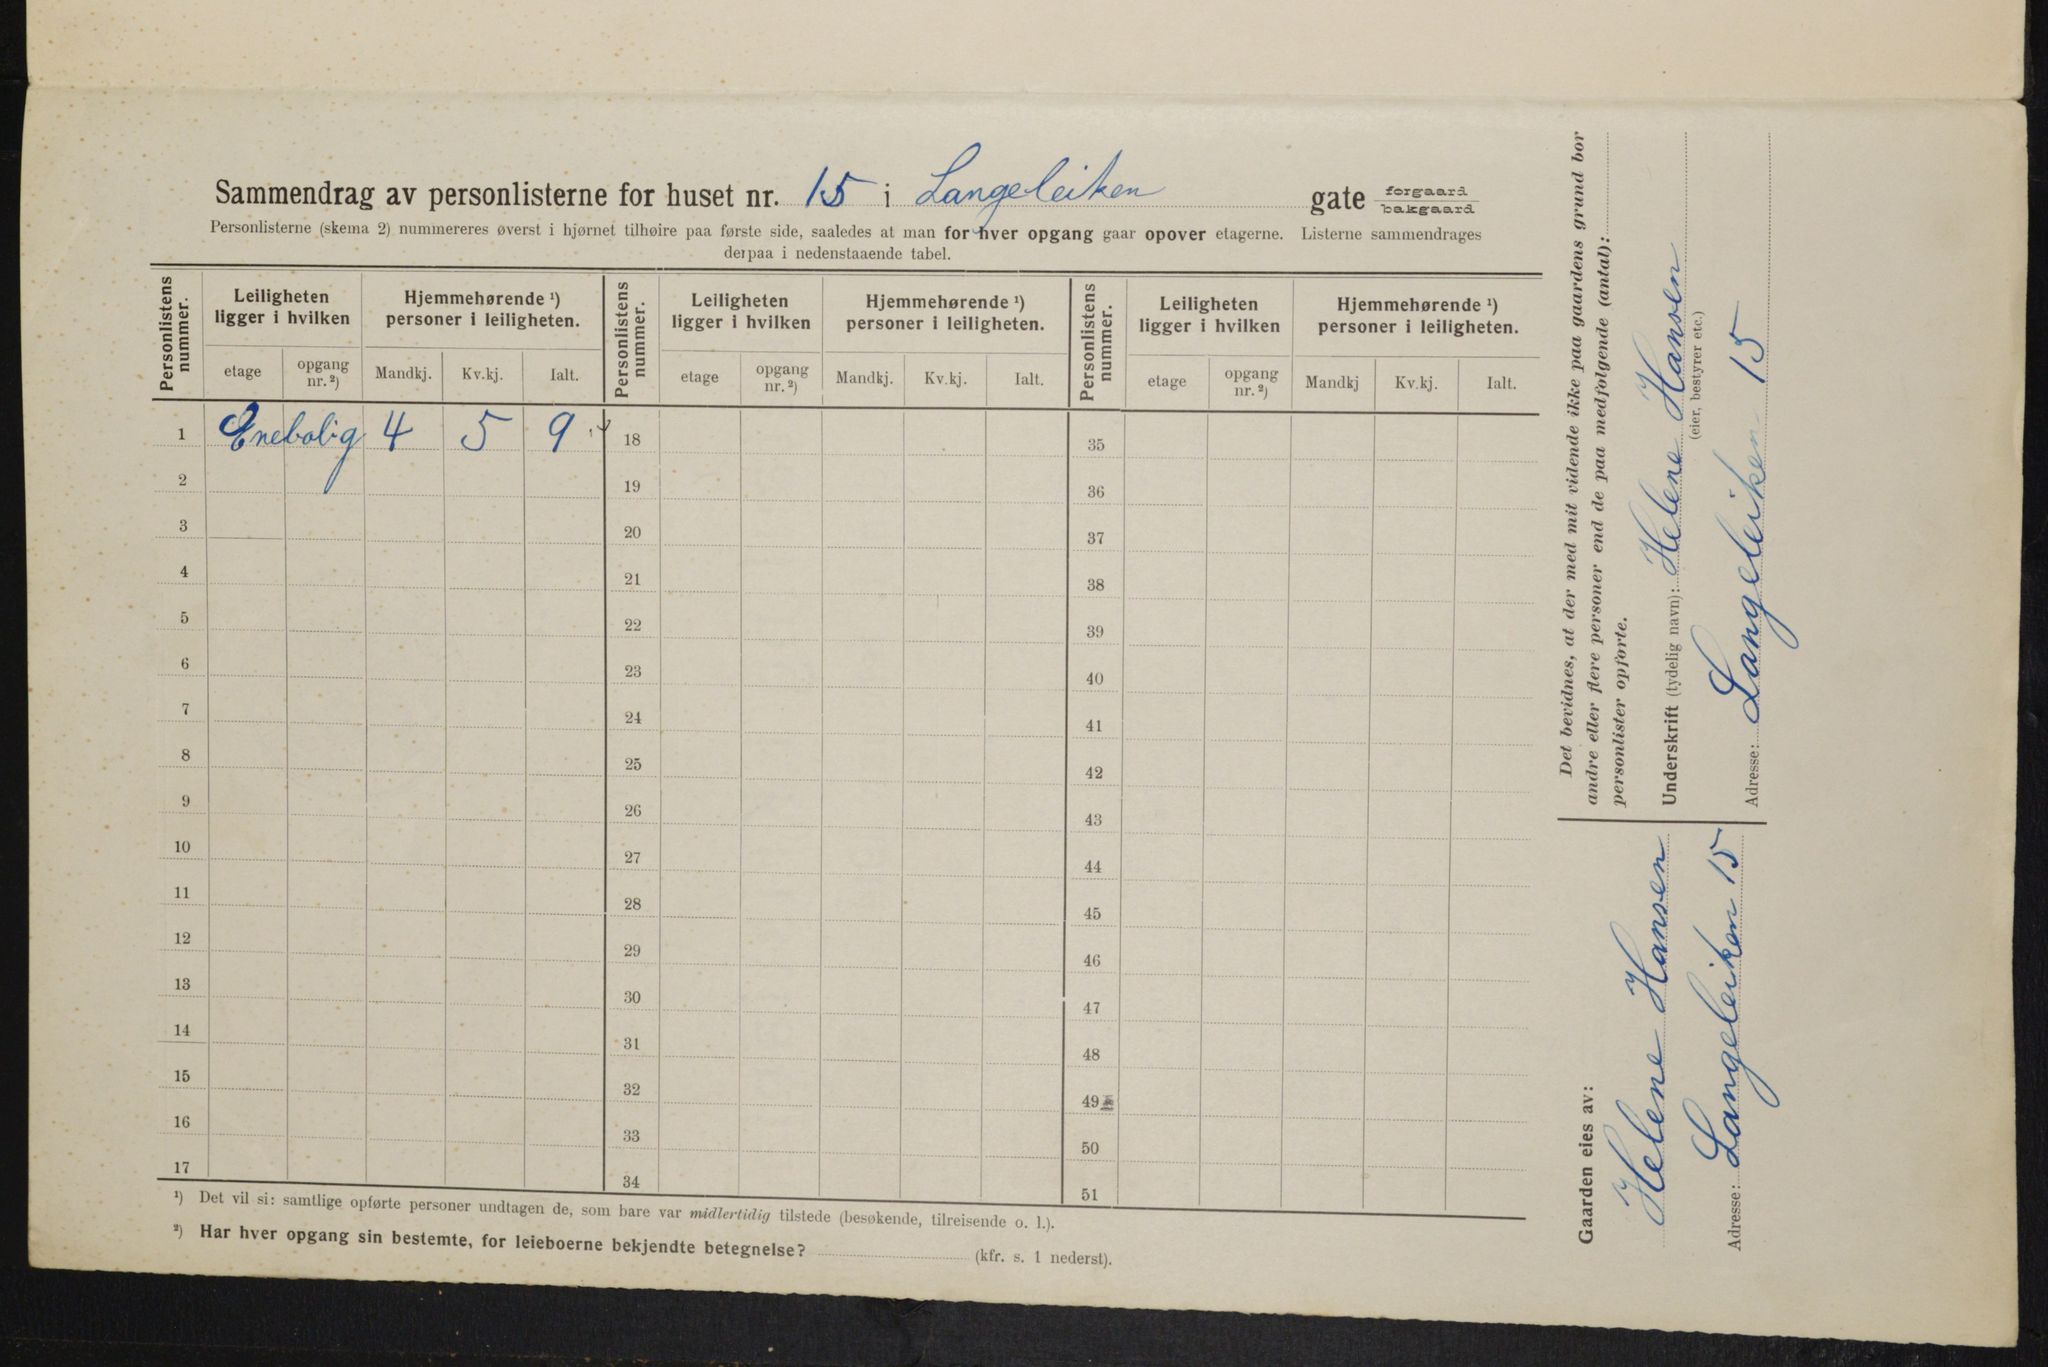 Sammendrag av personlisterne for huset nr. 15 i Langeleiken gate forgaard
bakgaard
Personlisterne (skema 2) nummereres øverst i hjørnet tilhøire paa første side, saaledes at man for hver opgang gaar opover etagerne. Listerne sammendrages
derpaa i nedenstaaende tabel.
Personlistens nummer.
Leiligheten ligger i hvilken
Hjemmehørende ¹) personer i leiligheten.
etage opgang nr. ²) Mandkj. Kv.kj. Ialt.
Personlistens nummer.
Leiligheten ligger i hvilken
Hjemmehørende ¹) personer i leiligheten.
etage opgang nr. ²) Mandkj. Kv.kj. Ialt.
Personlistens nummer.
Leiligheten ligger i hvilken
Hjemmehørende ¹) personer i leiligheten.
etage opgang nr. ²) Mandkj Kv.kj. Ialt.
1 Enebolig 4 5 9 18 35
2 19 36
3 20 37
4 21 38
5 22 39
6 23 40
7 24 41
8 25 42
9 26 43
10 27 44
11 28 45
12 29 46
13 30 47
14 31 48
15 32 49
16 33 50
17 34 51
¹) Det vil si: samtlige opførte personer undtagen de, som bare var midlertidig tilstede (besøkende, tilreisende o. l.).
²) Har hver opgang sin bestemte, for leieboerne bekjendte betegnelse? (kfr. s. 1 nederst).
Gaarden eies av:
Helene Hansen
Adresse: Langeleiken 15
Det bevidnes, at der med mit vidende ikke paa gaardens grund bor
andre eller flere personer end de paa medfølgende (antal):
personlister opførte.
Underskrift (tydelig navn): Helene Hansen
(eier, bestyrer etc.)
Adresse: Langeleiken 15